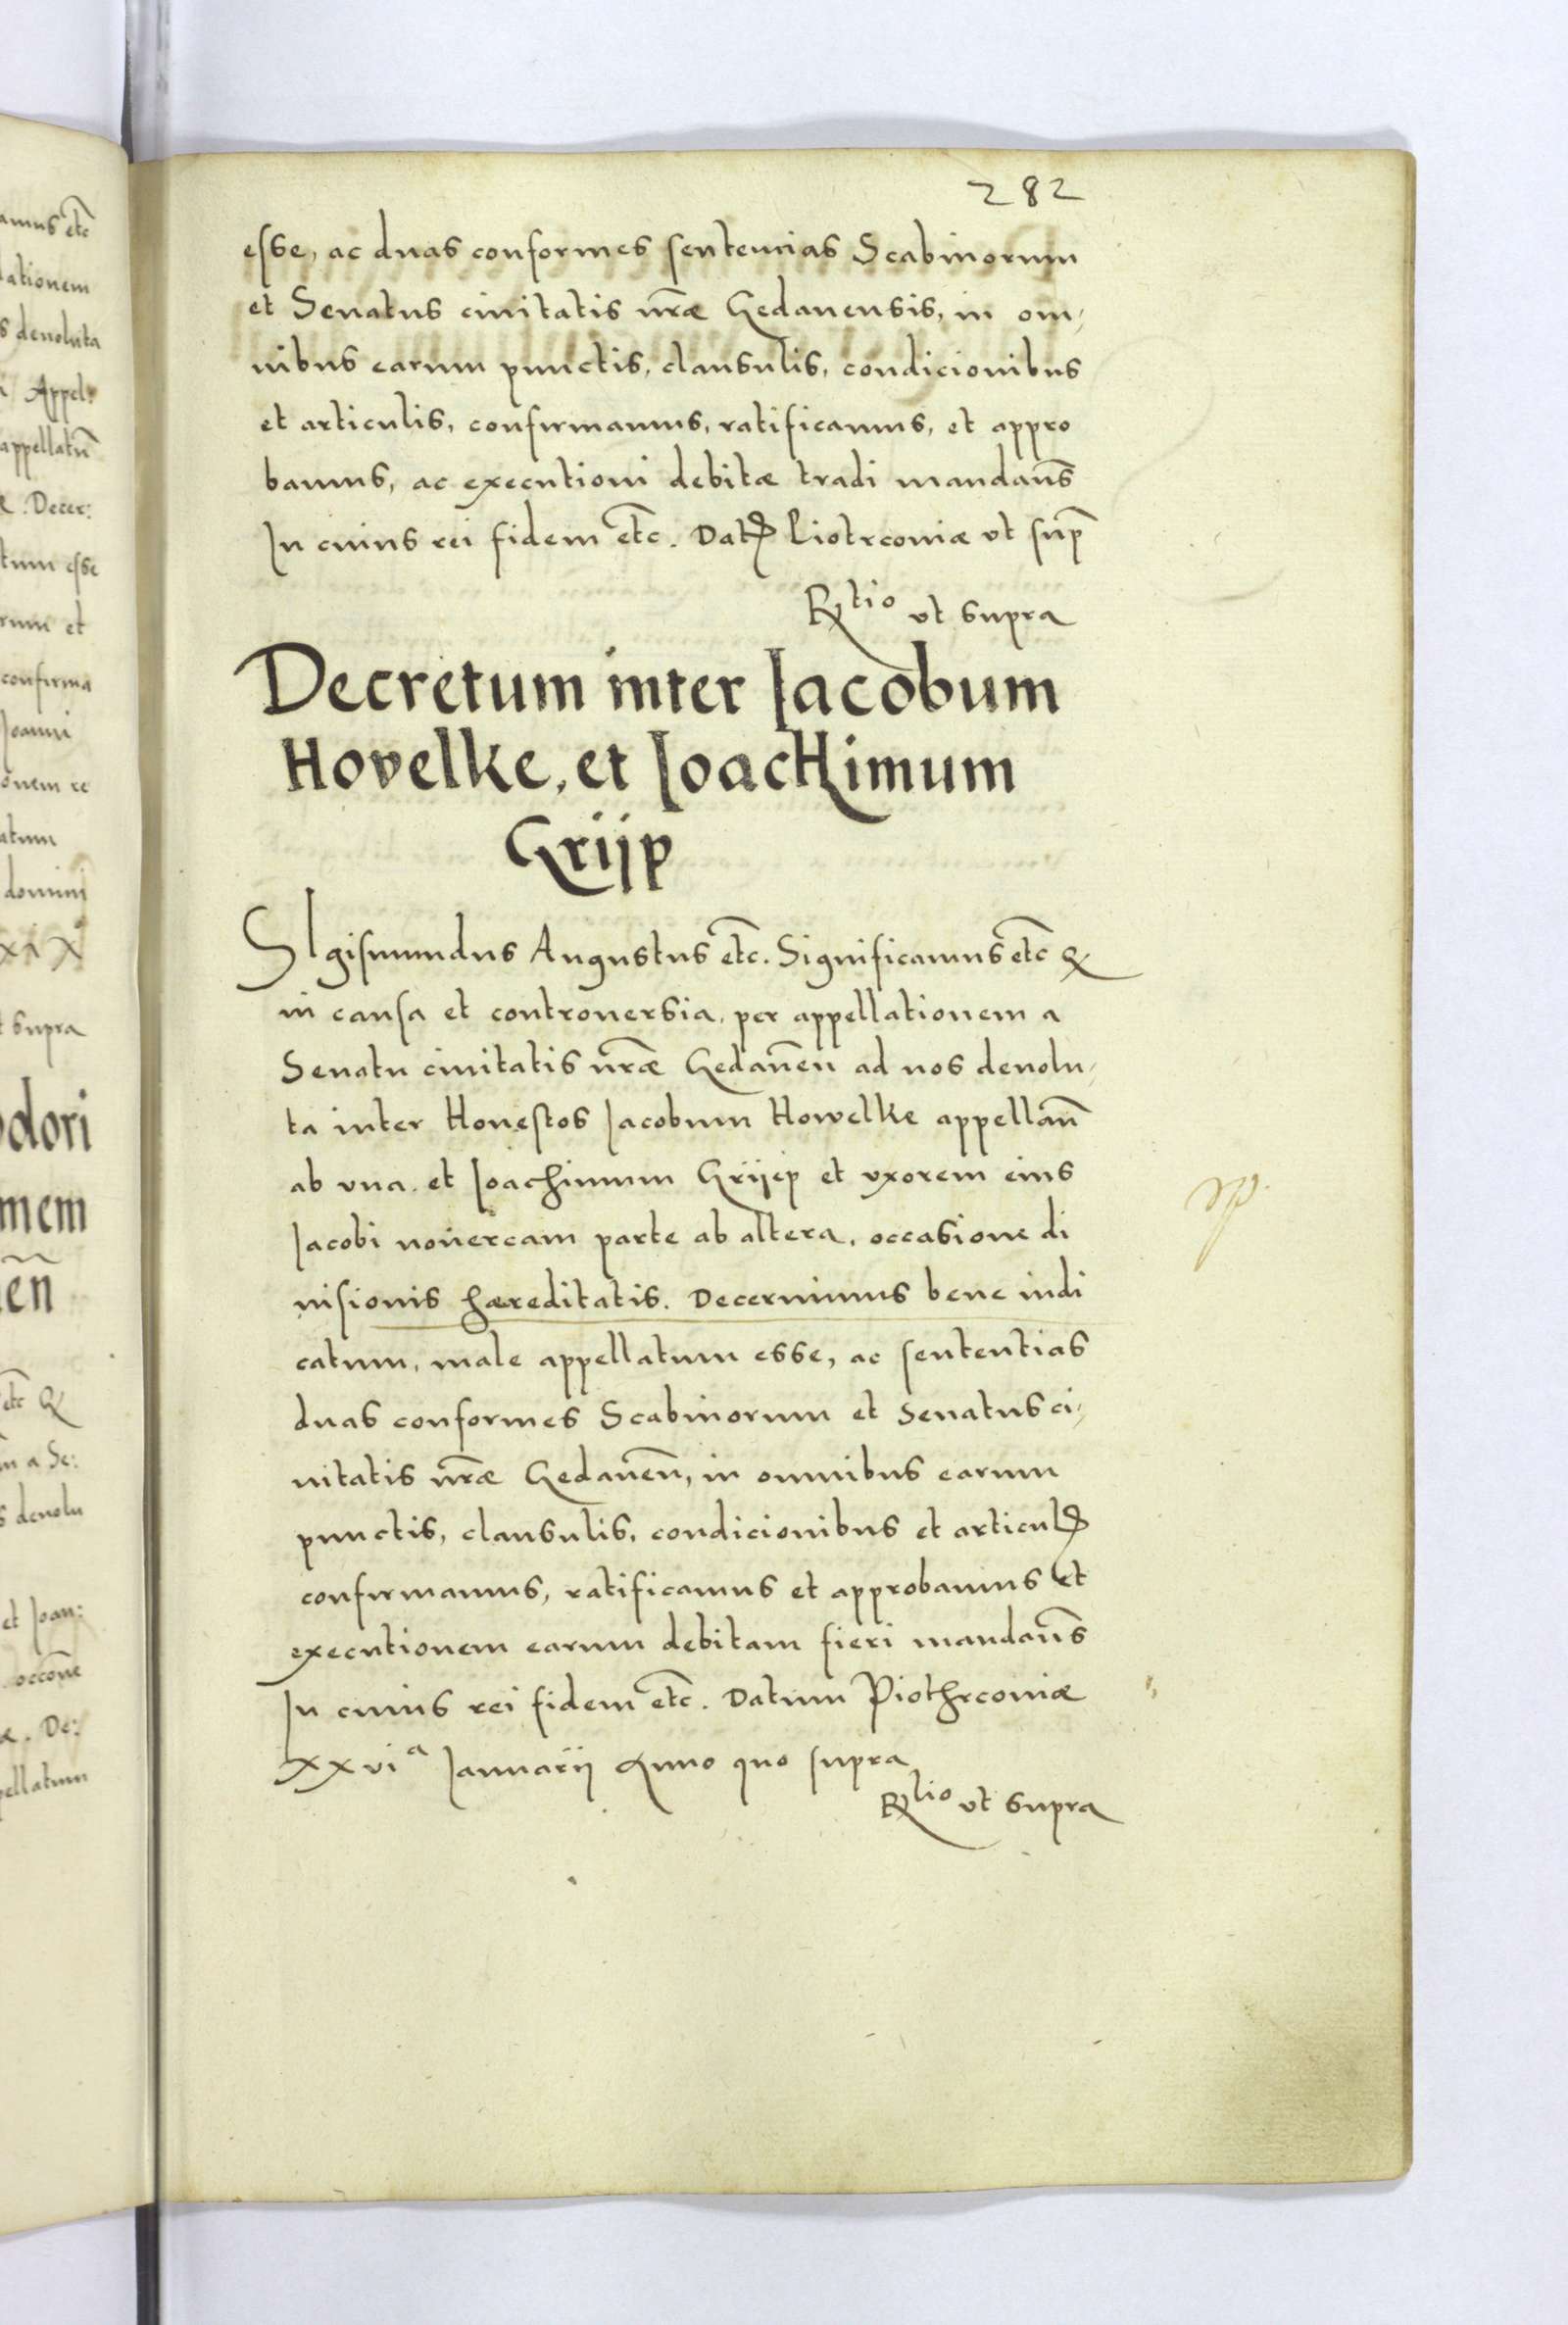 282
esse, ac duas conformes sentencias Scabinorum
et Senatus ciuitatis nr̃æ Gedanensis, in om,
nibus earum punctis, clausulis, condicionibus
et articulis, confirmamus, ratificamus, et appro
bamus, ac executioni debitæ tradi mandam̃s
In cuius rei fidem etc̃. Datꝭ Piotrcouiæ vt sup̃
Rtio vt supra
Decretum inter Iacobum
Hovelke, et Ioachimum
Grijp
SIgismundus Augustus etc̃. Significamus etc̃ Q
in causa et controuersia, per appellationem a
Senatu ciuitatis nr̃æ Gedanẽn ad nos deuolu,
ta inter Honestos Iacobum Howelke appellañ
ab vna. et Ioachimum Grijep et vxorem eius
Iacobi nouercam parte ab altera, occasione di
uisionis hæreditatis. Decernimus bene iudi
catum, male appellatum esse, ac sententias
duas conformes Scabinorum et Senatus ci,
uitatis nr̃æ Gedanẽn, in omnibus earum
punctis, clausulis, condicionibus et articulꝭ
confirmamus, ratificamus et approbamus et
executionem earum debitam fieri mandam̃s
In cuius rei fidem etc̃. Datum Piothrcouiæ
xxvia Ianuarij Anno quo supra
Rtio vt supra